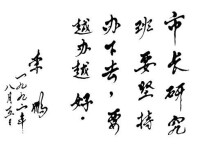 市长研究
班要坚持
办下去，要
越办越好。
李鹏
一九九一年
八月五日